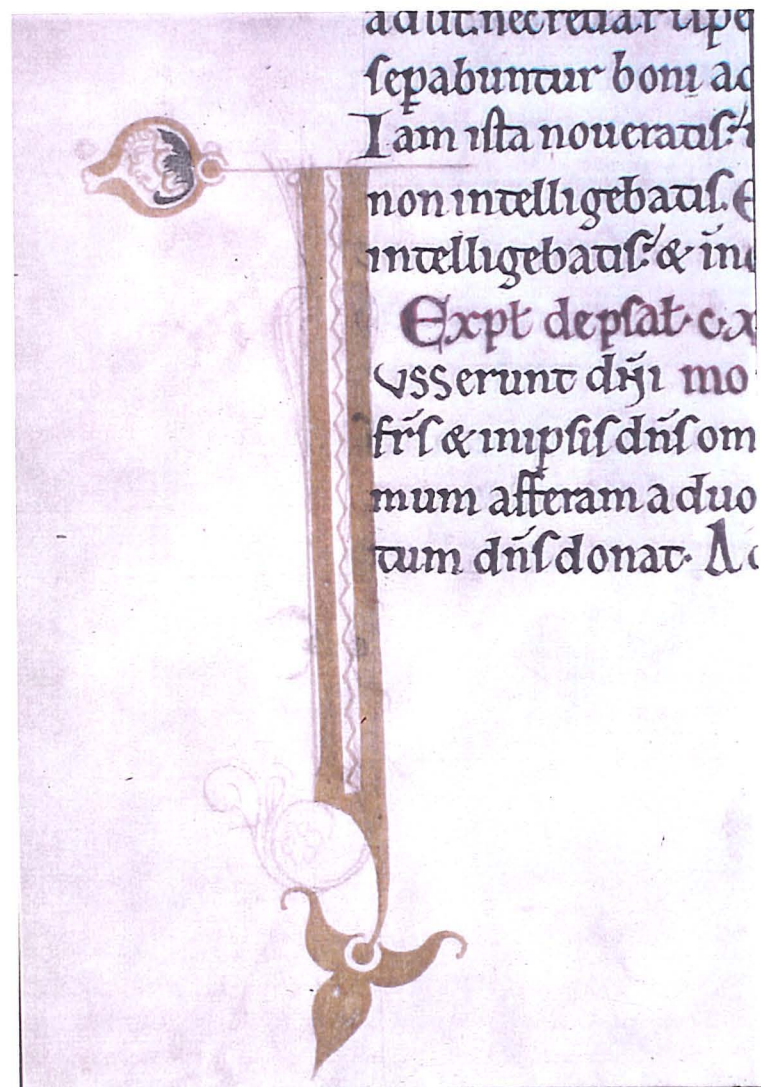 ad ut nec retiar upe
sepabuntur boni ad
Iam ista noueratis:
non intelligebatis. E
intelligebatis: & in
Expł de psał. c. x
usserunt dñi mo
frs & in ipsis dñs om
mum afferam ad uo
tum dñs donat. A